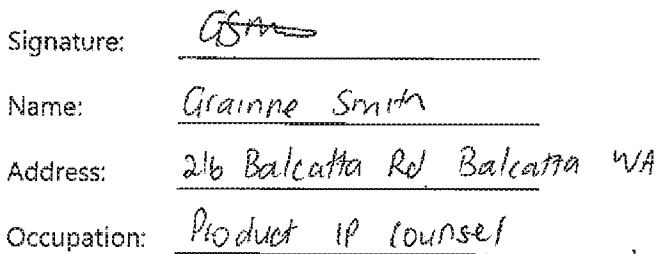 Signature: GSm
Name: Grainne Smith
Address: 216 Balcatta Rd Balcatta WA
Occupation: Product IP Counsel